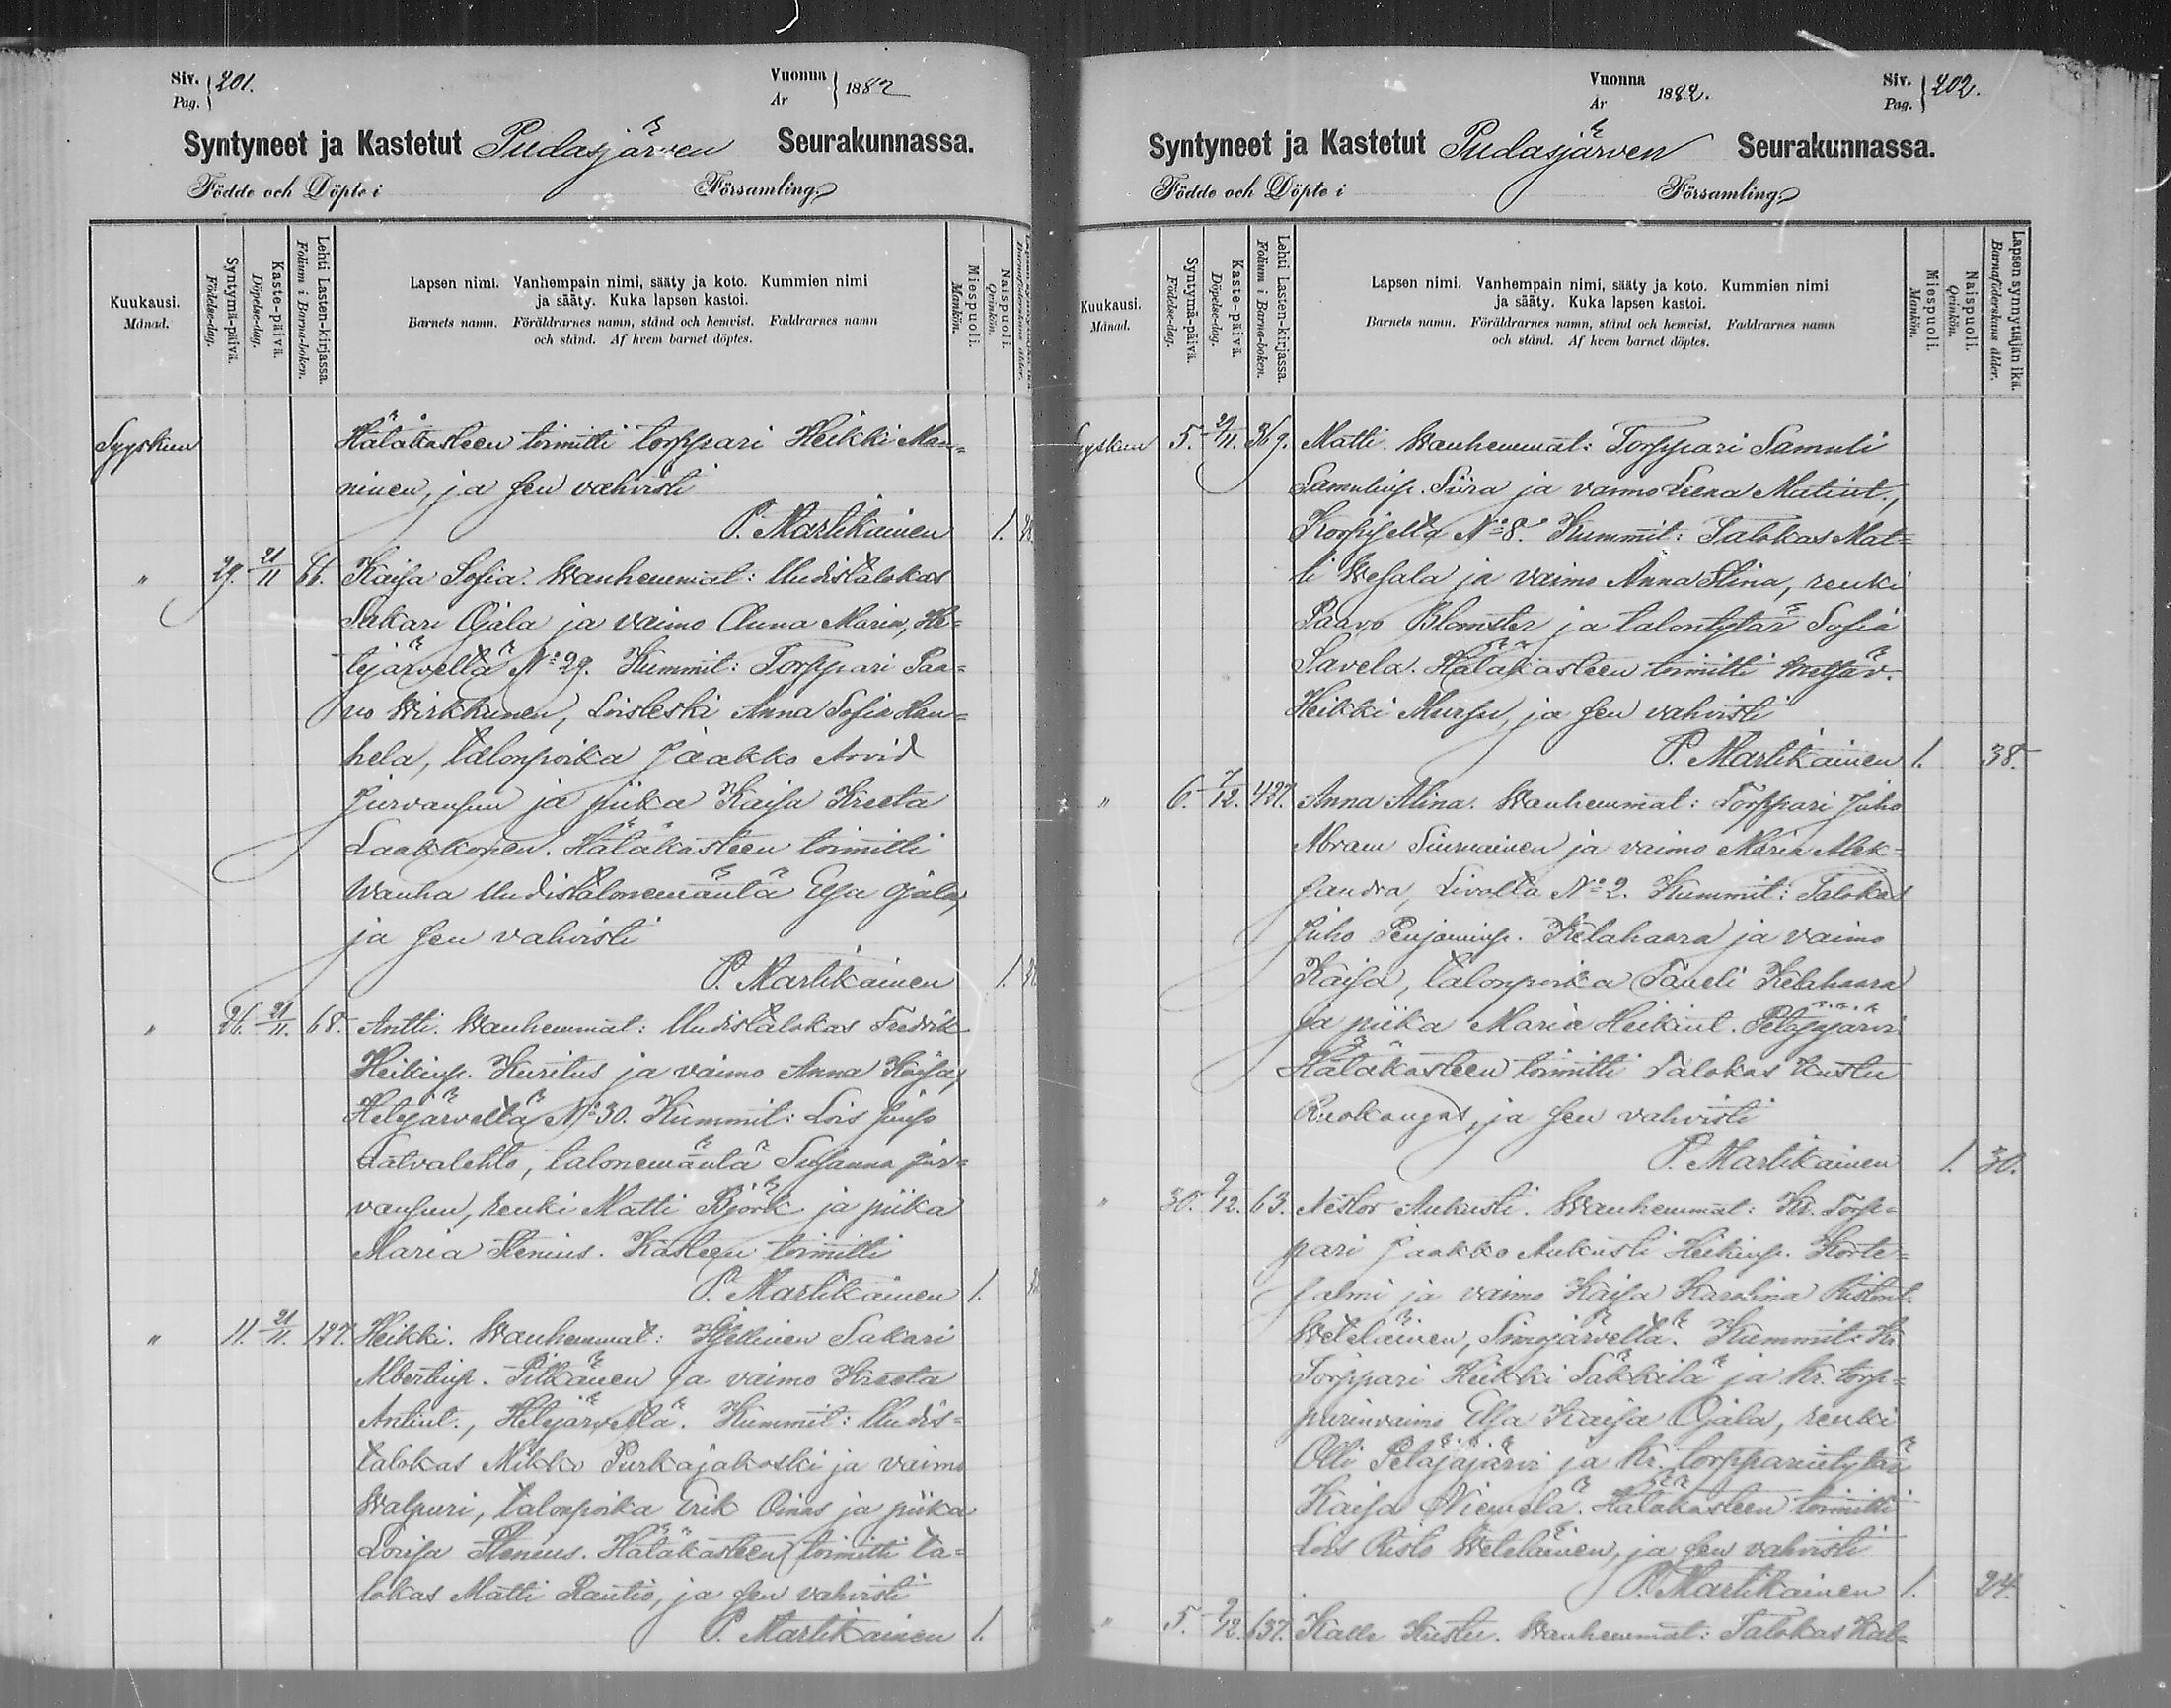 Siv. 201.
Pag.
Vuonna 1882
År
Syntyneet ja Kastetut Pudasjärven Seurakunnassa.
Födde och Döpte i Församling.
Kuukausi.
Månad.
Syntymä-päivä.
Födelse-dag.
Kaste-päivä.
Döpelse-dag.
Lehti Lasten-kirjassa.
Folium i Barna-boken.
Lapsen nimi. Vanhempain nimi, sääty ja koto. Kummien nimi
ja sääty. Kuka lapsen kastoi.
Barnets namn. Föräldrarnes namn, stånd och hemvist. Faddrarnes namn
och stånd. Af hvem barnet döptes.
Miespuoli.
Mankön.
Naispuoli.
Qvinkön.
Syyskuu Hätäkasteen toimitti torppari Heikki Man=
ninen, ja sen vahvisti
P. Martikainen 1.
" 29. 21/11 66. Kaisa Sofia. Wanhemmat: Uudistalokas
Sakari Ojala ja vaimo Anna Maria, He=
tejärveltä No 29. Kummit: Torppari Paa=
vo Wirkkunen, Loisleski Anna Sofia Han=
hela, talonpoika Jaakko Arvid
Jurvansuu ja piika Kaisa Kreeta
Laakkonen. Hätäkasteen toimitti
Wanha Uudistalonemäntä Elsa Ojala,
ja sen vahvisti
P. Martikainen 1.
" 26. 21/11. 68. Antti. Wanhemmat: Uudistalokas Fredrik
Heikinp. Kuritus ja vaimo Anna Kaisa,
Hetejärveltä No 30. Kummit: Lois Juho
Latvalehto, talonemäntä Susanna Jur=
vansuu, renki Matti Björk ja piika
Maria Stenius. Kasteen toimitti
P. Martikainen 1.
" 11. 21/11. 127. Heikki. Wanhemmat: Itsellinen Sakari
Albertinp. Pitkänen ja vaimo Kreeta
Antint., Hetejärveltä. Kummit: Uudis=
talokas Mikko Purkajakoski ja vaimo
Walpuri, talonpoika Erik Oinas ja piika
Lovisa Stenius. Hätäkasteen toimitti ta=
lokas Matti Rautio, ja sen vahvisti
P. Martikainen 1.
Vuonna 1882.
År
Siv. 202.
Pag.
Syntyneet ja Kastetut Pudasjärven Seurakunnassa.
Födde och Döpte i Församling.
Kuukausi.
Månad.
Syntymä-päivä.
Födelse-dag.
Kaste-päivä.
Döpelse-dag.
Lehti Lasten-kirjassa.
Folium i Barna-boken.
Lapsen nimi. Vanhempain nimi, sääty ja koto. Kummien nimi
ja sääty. Kuka lapsen kastoi.
Barnets namn. Föräldrarnes namn, stånd och hemvist. Faddrarnes namn
och stånd. Af hvem barnet döptes.
Miespuoli.
Mankön.
Naispuoli.
Qvinkön.
Lapsensynnyttäjän ikä.
Barnaföderskans ålder.
yyskuu 5. 21/11. 369. Matti. Wanhemmat: Torppari Samuli
Samulinp. Siira ja vaimo Leena Matint.,
Korpiseltä No 8. Kummit: Talokas Mat=
ti Wesala ja vaimo Anna Stina, renki
Paavo Blomster ja talontytär Sofia
Savela. Hätäkasteen toimitti metsäv.
Heikki Mursu, ja sen vahvisti
P. Martikainen 1. 38.
" 6. 7/12. 427. Anna Alina. Wanhemmat: Torppari Juho
Abram Siurnainen ja vaimo Maria Alek=
sandra, Livolta No 2. Kummit: Talokas
Juho Penjaminp. Kelahaara ja vaimo
Kaisa, talonpoika Taneli Kelahaara
ja piika Maria Heikint. Petäjäjärvi.
Hätäkasteen toimitti Talokas Kustu
Ruokangas, ja sen vahvisti
P. Martikainen 1. 30.
" 30. 9/12. 63. Nestor Aukusti. Wanhemmat: Kr. Torp=
pari Jaakko Aukusti Heikinp. Korte=
salmi ja vaimo Kaisa Karolina Ristont.
Weteläinen, Simojärveltä. Kummit: Kr.
Torppari Heikki Säkkilä ja Kr. torp=
parinvaimo Elsa Kaisa Ojala, renki
Olli Petäjäjärvi ja Kr. torpparintytär
Kaisa Niemelä. Hätäkasteen toimitti
Lois Risto Weteläinen, ja sen vahvisti
P. Martikainen 1. 24.
" 5. 9/12. 637. Kalle Kustu. Wanhemmat: Talokas Kal=